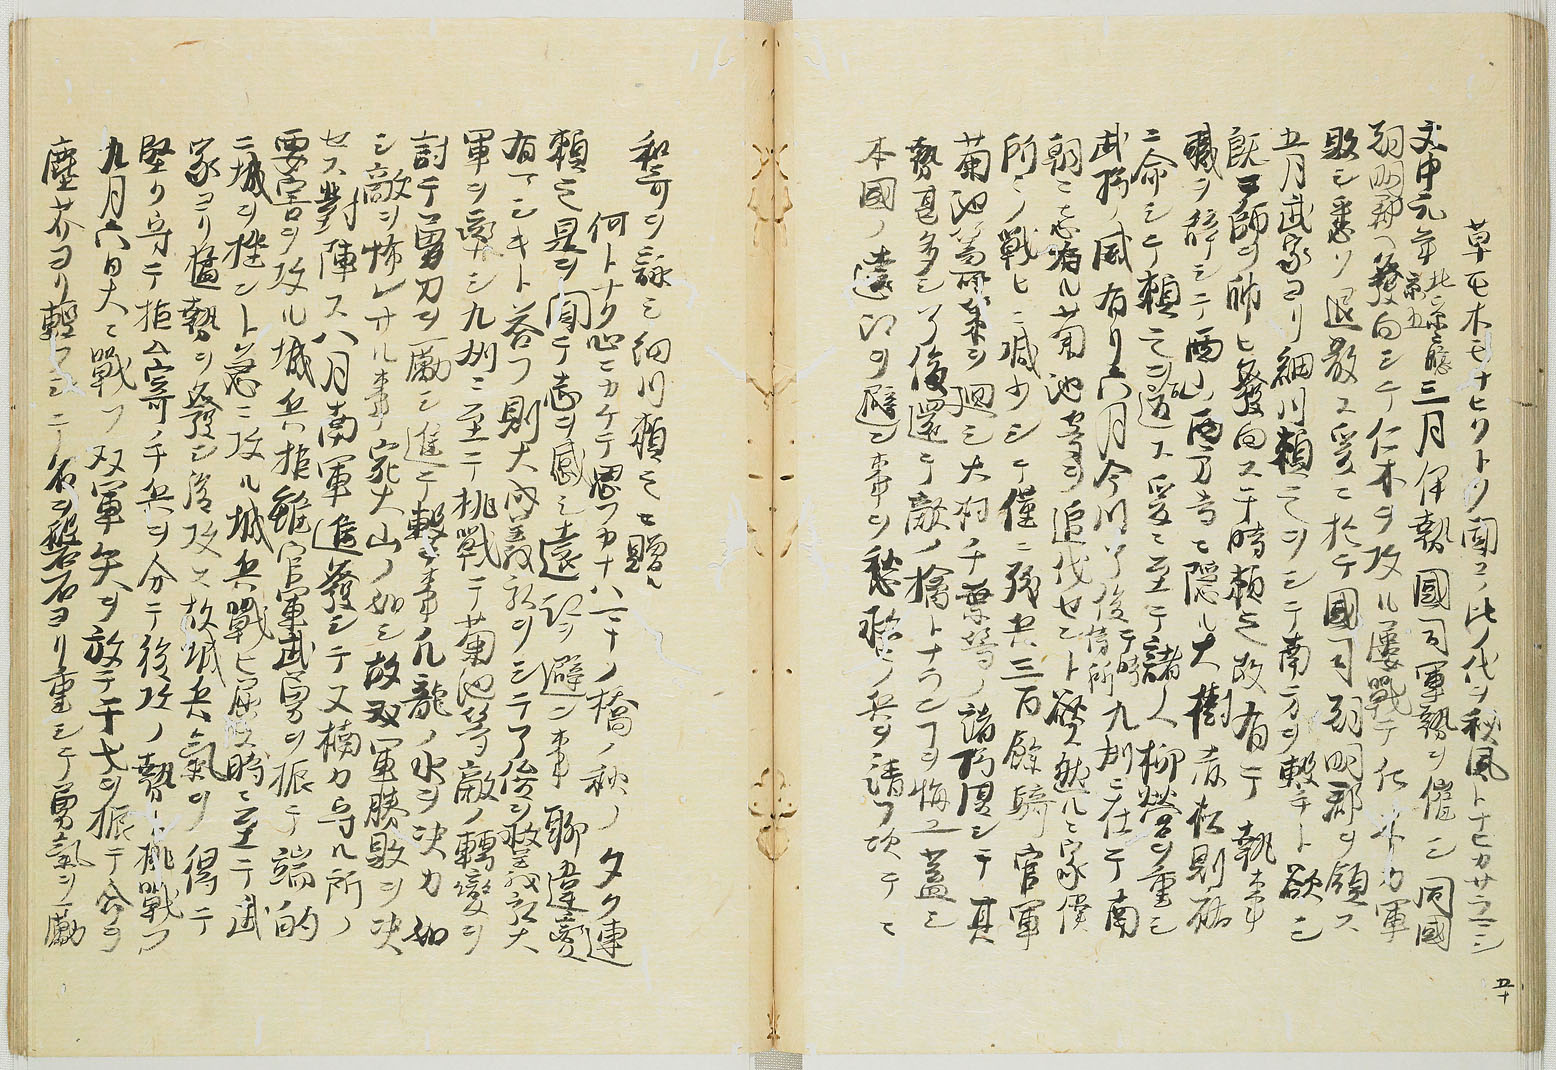 草モ木モナヒクトソ聞ク此ノ代ヲ秋風トナヒカサラナン
文中元年北京應安五三月伊勢國司軍勢ヲ催シ同國
朝明郡ヘ發向シテ仁木ヲ攻ル屢戰テ仁木カ軍
敗シ悉ク退散ス爰ニ於テ國司朝明郡ヲ領ス
五月武家ヨリ細川頼之ヲシテ南方ヲ撃ント欲シ
既ニ師ヲ帥ヒ發向ス于時頼之故有テ執事
職ヲ辞シテ西山西方寺ニ隠ル大樹赤松則祐
ニ命シテ頼之ヲ返ス爰ニ至テ諸人柳營ヲ重シ
武将ノ威有リ六月今川了俊于時侍所九州ニ在テ南
朝ニ志有ル菊池等ヲ追伐セント欲ス然ルニ家僕
所々ノ戰ヒニ減少シテ僅ニ残兵三百餘騎官軍
菊池等万策ヲ廻シ大村千葉等ノ諸將與シテ其
勢甚多シ了俊還テ敵ノ擒トナランコヲ悔ユ蓋シ
本國ノ遠江ヲ避シ事ヲ愁ヘ兵ヲ請フ次テニ
和哥ヲ詠シ細川頼之ニ贈ル
何トナク心ニカケテ思フカナ八十ノ橋ノ秋ノ夕ク連
頼之是ヲ聞テ志ヲ感シ遠江ヲ避シ事聊違変
有マシキト答フ則大内義弘ヲシテ了俊ヲ救義弘大
軍ヲ率シ九州ニ至テ挑戰テ菊池等敵ノ轉變ヲ
討テ勇力ヲ勵シ進テ撃事凡龍ノ水ヲ決カ如
シ敵ヲ怖レサル事宛大山ノ如シ故双軍勝敗ヲ決
セス對陣ス八月南軍進發シテ又楠カ守ル所ノ
要害ヲ攻ル城兵拒雖官軍武勇ヲ振テ端的
ニ城ヲ挫ント急ニ攻ル城兵戰ヒ屈シ時ニ至テ武
家ヨリ猛勢ヲ發シ後攻ス故城兵氣ヲ得テ
堅ク守テ拒ム寄手兵ヲ分テ後攻ノ勢ト挑戰フ
九月六日大ニ戰フ双軍矢ヲ放テ干戈ヲ振テ命ヲ
塵芥ヨリ輕フシテ名ヲ磐石ヨリ重シテ勇氣ヲ勵
五十